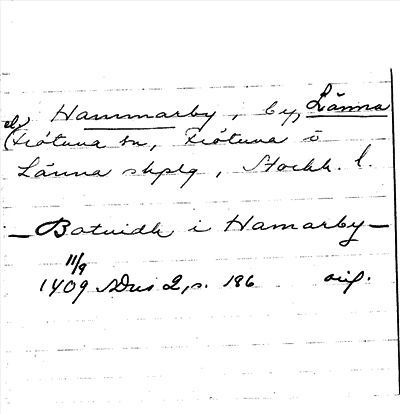 Hammarby, by, Länna
(Frötuna sn, Frötuna o
Länna skplg, Stockh. l.
— Botuidh i Hamarby —
11/9
1409 SDns 2, s. 186 orig.